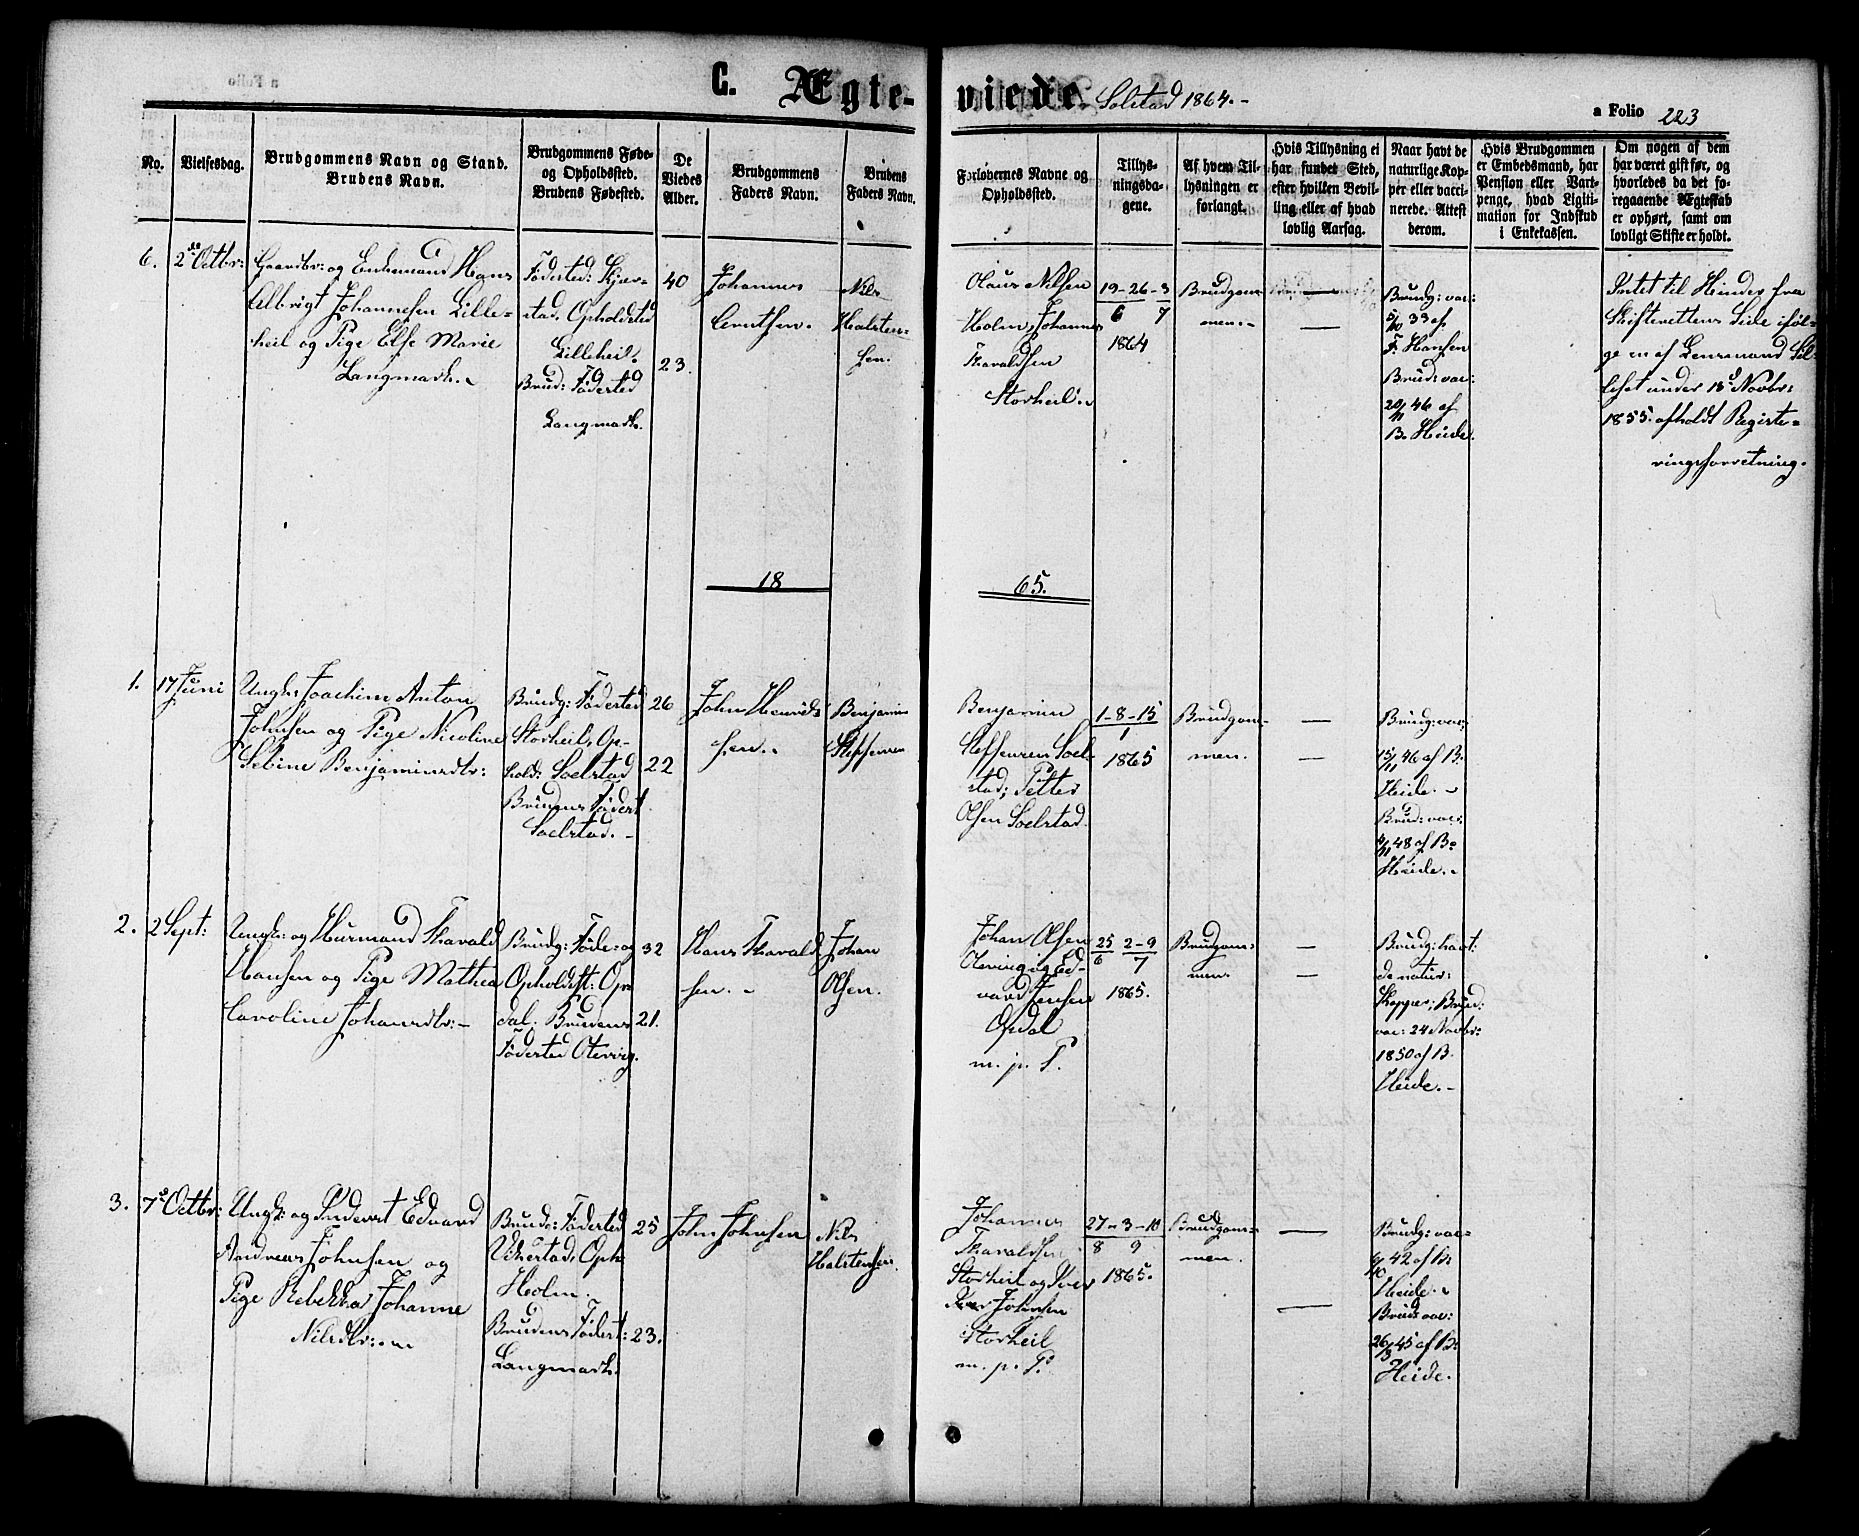 C. Ægte-viede. Solstad 1864.-
a Folio 223
No.
Vielsesdag.
Brudgommens Navn og Stand.
Brudens Navn.
Brudgommens Føde-
og Opholdssted.
Brudens Fødested.
De
Viedes
Alder.
Brudgommens
Faders Navn.
Brudens
Faders Navn.
Forlovernes Navne og
Opholdssted.
Tillys-
ningsda-
gene.
Af hvem Til-
lysningen er
forlangt.
Hvis Tillysning ei
har fundet Sted,
efter hvilken Bevil-
ling eller af hvad
lovlig Aarsag.
Naar havt de
naturlige Kop-
per eller vacci-
nerede. Attest
derom.
Hvis Brudgommen
er Embedsmand, har
Pension eller Vart-
penge, hvad Ligiti-
mation for Indskud
i Enkekassen.
Om nogen af dem
har været gift før, og
hvorledes da det fo-
regaaende Ægteskab
er ophørt, samt om
lovligt Skifte er holdt.
6.
2de Octbr:
Gaardbr: og Enkemand Hans
Albrigt Johannesen Lille=
heil og Pige Else Marie
Langmark.
Fødested: Skjær-
stad, Opholdsted
Lilleheil.
Brud: Fødested
Langmark.
40
23.
Johannes
Arntsen.
Nils
Halsten-
sen.
Claus Nilsen
Holm, Johannes
Thoraldsen
Storheil.
19-26-3
6 7
1864
Brudgom-
men.
—
—
Brudg: vac:
5/10 33 af
F. Hansen
Brud: vac:
20/11 46 af
B. Heide.
Intet til Hinder fra
Skifterettens Side iføl-
ge en af Lensmand
under 18d Novbr:
1855 afholdt Registe=
ringsforretning.
18
65.
1.
17 Juni
Ungk: Joachim Anton
Johnsen og Pige Nicoline
Sebine Benjaminsdtr:
Brudg: Fødested
Storheil, Op-
hold: Soelstad
Brudens Fødest.
Soelstad.
26
22
John Henrik-
sen.
Benjamin
Steffensen
Benjamin
Steffensen Soel-
stad; Petter
Olsen Soelstad.
1-8-15
1
1865
Brudgom-
men.
—
—
Brudg: vac:
15/11 46 af B.
Heide.
Brud: vac:
4/11 48 af B.
Heide.
2.
2 Sept:
Ungk: og Huusmand Thorald
Hansen og Pige Mathea
Caroline Johansdtr:
Brudg: Føde- og
Opholdsst: Op-
dal: Brudens
Fødested Otervig.
32
21.
Hans Thorald-
sen.
Johan
Olsen.
Johan Olsen
Otervig og Ed-
vard Jensen
Opdal
m. p. P.
25 2-9
6 7
1865.
Brudgom-
men.
—
—
Brudg: havt
de natur:
Kopper; Brud:
vac: 24 Novbr:
1850 af B.
Heide.
3.
7de Octbr:
Ungk: og Inderst Edvard
Andreas Johnsen og
Pige Rebekka Johanne
Nilsdtr:
Brudg: Fødested
Vikestad, Oph.
Holm.
Brudens Fødest:
Langmark.
25
23.
John Johnsen
Nils
Halstensen.
Johannes
Thoraldsen
Storheil og Iver
Johnsen
Storheil
m. p. P.
27-3-10
8 9
1865.
Brudgom-
men.
—
—
Brudg: vac:
42 af B.
Heide.
Brud: vac:
26/13 45 af B.
Heide.